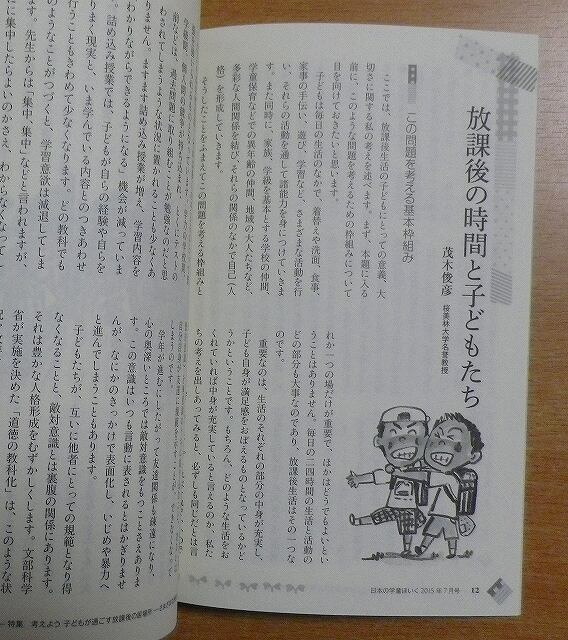 放課後の時間と子どもたち
茂木俊彦 桜美林大学名誉教授
ここでは、放課後生活の子どもにとっての意義、大
切さに関する私の考えを述べます。まず、本題に入る
前に、このような問題を考えるための枠組みについて
目を向けておきたいと思います。
この問題を考える基本枠組み
子どもは毎日の生活のなかで、着替えや洗面、食事、
家事の手伝い、遊び、学習など、さまざまな活動を行
い、それらの活動を通して諸能力を身につけていきま
す。また同時に、家族、学級を基本とする学校の仲間、
学童保育などでの異年齢の仲間、地域の大人たちなど、
多彩な人間関係を結び、それらの関係のなかで自己（人
格）を形成していきます。
そうしたことをふまえてこの問題を考える枠組みと
れか一つの場だけが重要で、ほかはどうでもよいとい
うことはありません。毎日の二四時間の生活と活動の
どの部分も大事なのであり、放課後生活はその一つな
のです。
重要なのは、生活のそれぞれの部分の中身が充実し、
子ども自身が満足感をおぼえるものとなっているかど
うかということです。もちろん、どのような生活をお
くれていれば中身が充実していると言えるのか、私た
ちの考えを出しあってみるし、必ずしも同じだとは言
日本の学童ほいく 2015年7月号 12
前などは、過去問題に取り組むことが勉強なのだと思
わされてしまうような状況に置かれることも少なくあ
りません。ますます詰め込み授業が増え、学習内容を
わかりながらできるようになる」機会が減っていま
す。詰め込み授業では、子どもが自らの経験や自らを
りまく現実と、いま学んでいる内容とのつきあわせ
行うこともきわめて少なくなります。どの教科でも
のようなことがつづくと、学習意欲は減退してしま
ます。先生からは「集中、集中」などと言われますが、
に集中したらよいのかさえ、わからなくなって
学年が進むにしたがって友達関係も疎遠になり、
心の奥深いところでは敵対意識をもつことさえありま
す。この意識はいつも言動に表されるとはかぎりませ
んが、なにかのきっかけで表面化し、いじめや暴力へ
と進んでしまうこともあります。
子どもたちが、互いに他者にとっての規範となり得
なくなることと、敵対意識とは裏腹の関係にあります。
それは豊かな人格形成をむずかしくします。文部科学
省が実施を決めた「道徳の教科化」は、このような状
特集 考えよう 子どもが過ごす放課後の居場所